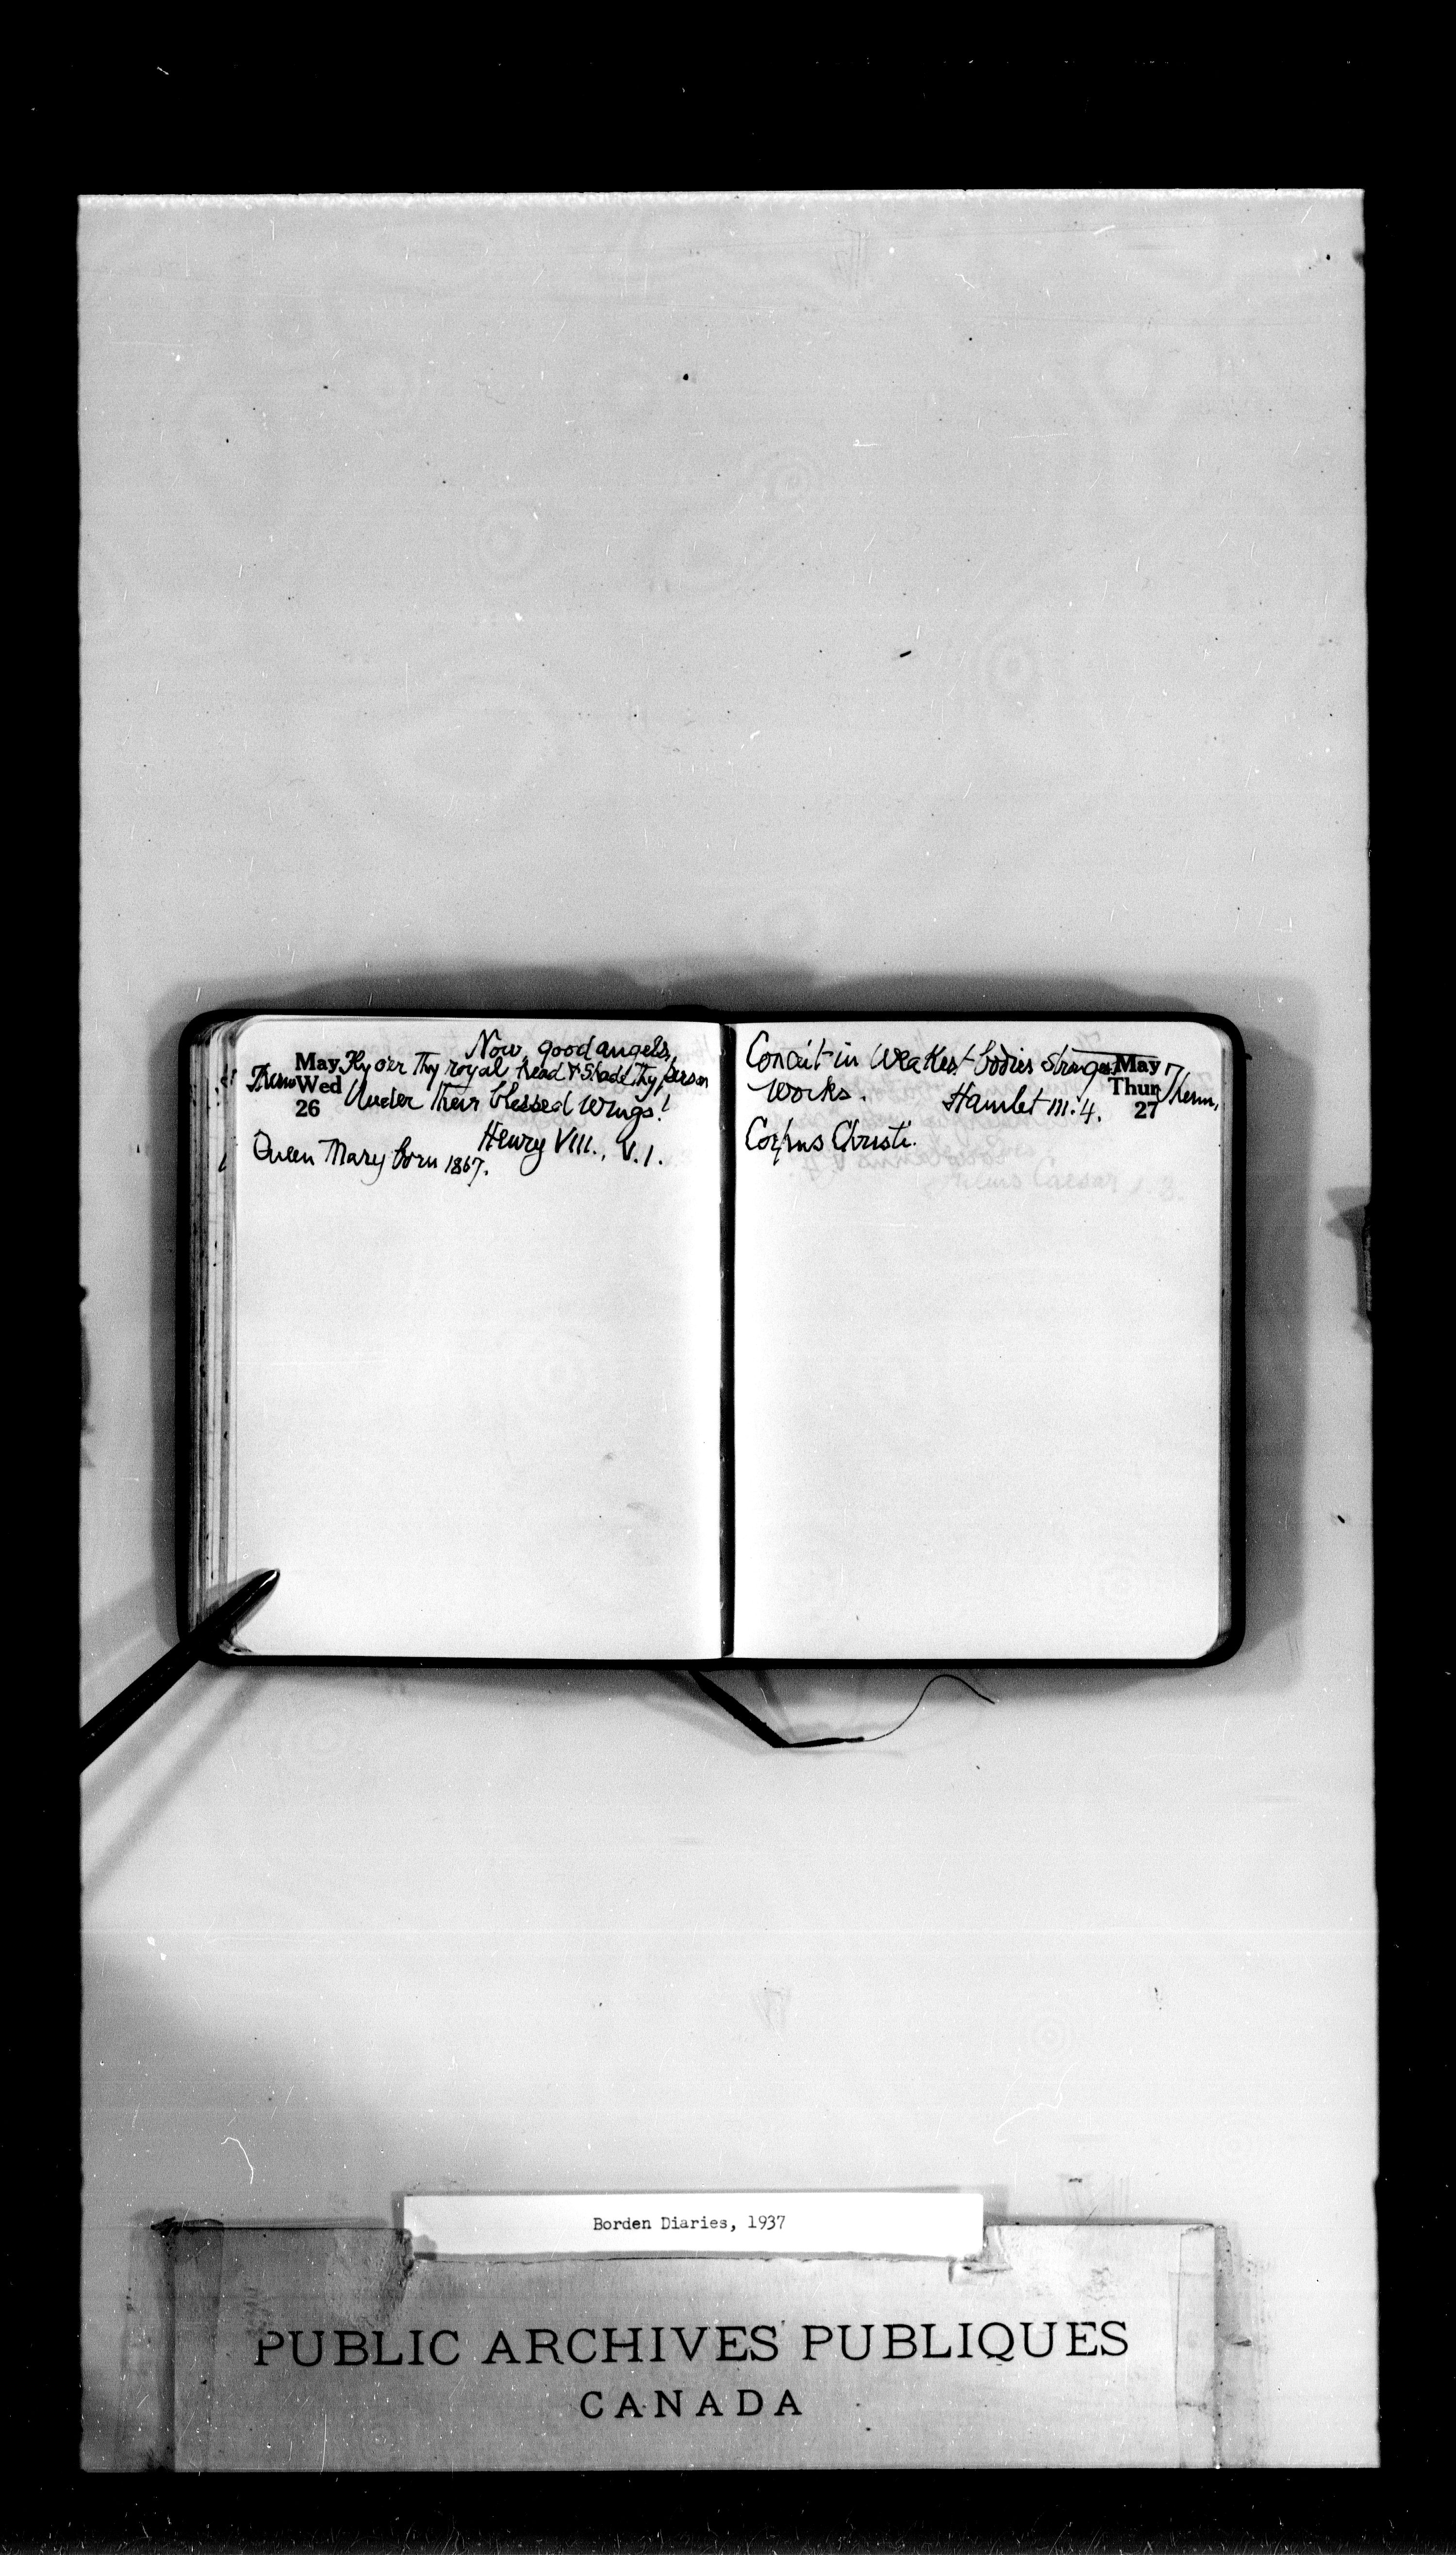 Now, good angels,
May Fly o'er Thy royal head & Shade Thy person
Therm Wed Under Their blessed wings!
26
Henry VIII., V.1.
Queen Mary born 1867.
Conceit in Weakest bodies strongest May
Works. Hamlet III.4. Thur Therm,
27
Corpus Christi.
Borden Diaries, 1937
PUBLIC ARCHIVES PUBLIQUES
CANADA